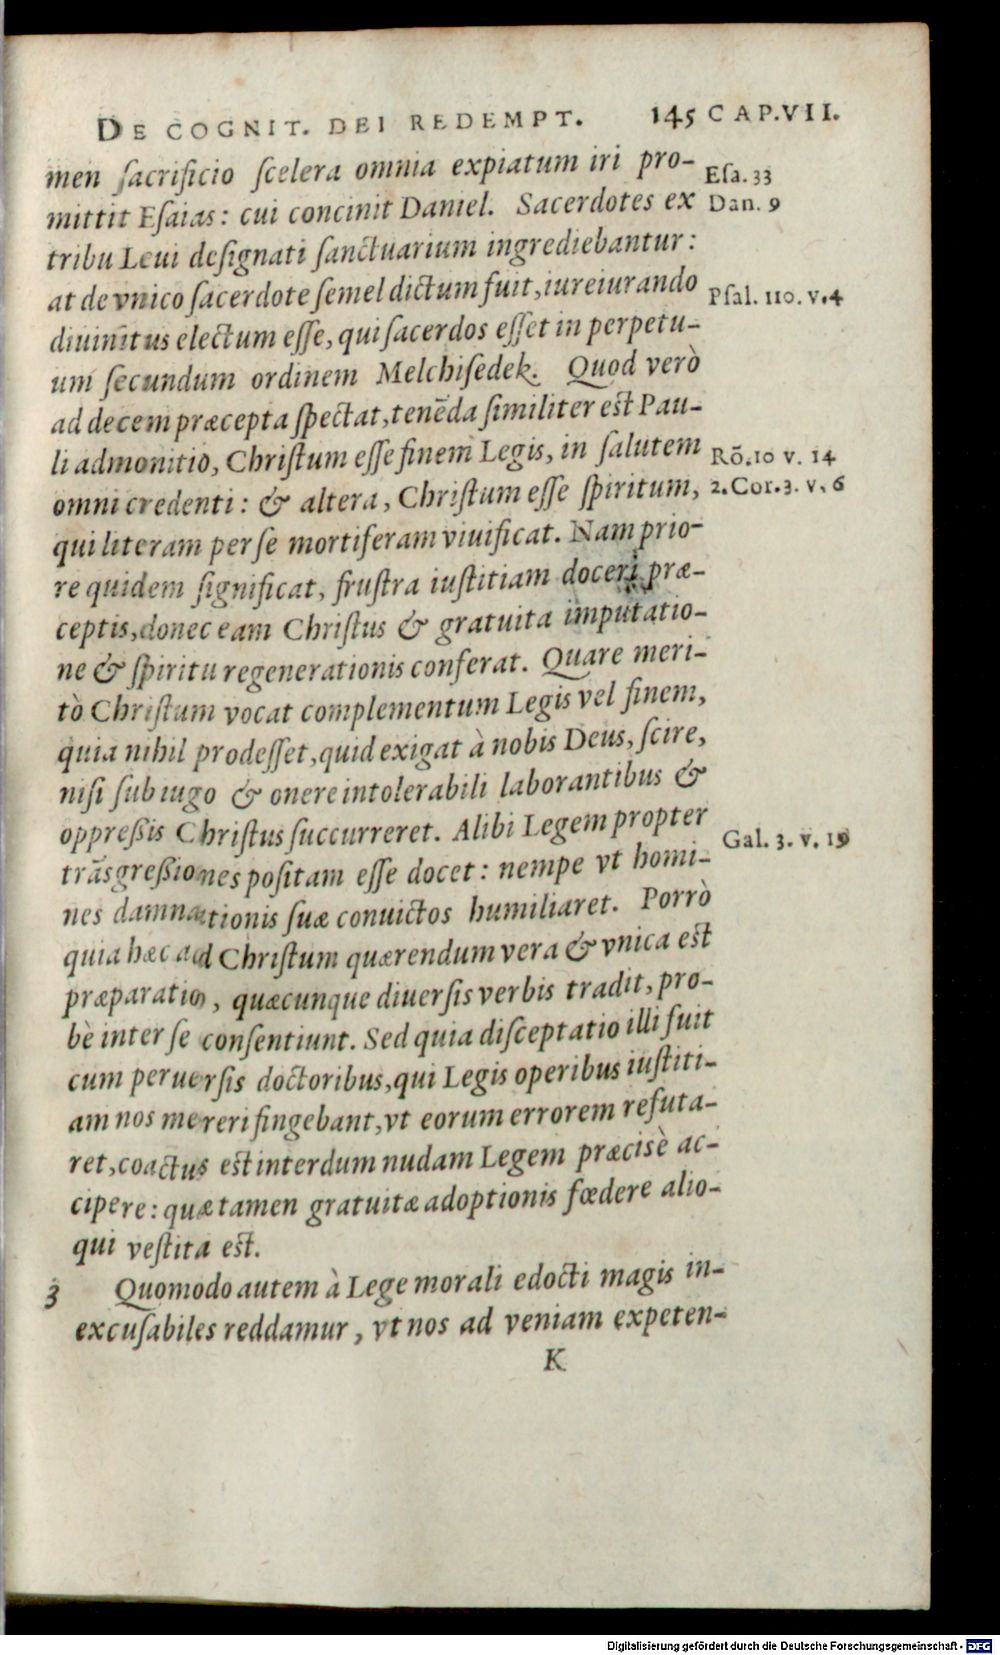 DE COGNIT. DEI REDEMPT. 145 CAP.VII.
men sacrificio scelera omnia expiatum iri pro-
Esa. 33
mittit Esaias: cui concinit Daniel. Sacerdotes ex
Dan. 9
tribu Leui designati sanctuarium ingrediebantur:
at de vnico sacerdote semel dictum fuit, iureiurando
Psal. 110. v.4
diuinitus electum esse, qui sacerdos esset in perpetu-
um secundum ordinem Melchisedek. Quod verò
ad decem præcepta spectat, tenēda similiter est Pau-
li admonitio, Christum esse finem Legis, in salutem
Rō.10 v. 14
omni credenti: & altera, Christum esse spiritum,
2.Cor.3. v. 6
qui literam per se mortiferam viuificat. Nam prio-
re quidem significat, frustra iustitiam doceri præ-
ceptis, donec eam Christus & gratuita imputatio-
ne & spiritu regenerationis conferat. Quare meri-
tò Christum vocat complementum Legis vel finem,
quia nihil prodesset, quid exigat à nobis Deus, scire,
nisi sub iugo & onere intolerabili laborantibus &
oppressis Christus succurreret. Alibi Legem propter
Gal. 3. v. 19
trāsgressiones positam esse docet: nempe vt homi-
nes damnationis suæ conuictos humiliaret. Porrò
quia hæc ad Christum quærendum vera & vnica est
præparatio, quæcunque diuersis verbis tradit, pro-
bè inter se consentiunt. Sed quia disceptatio illi fuit
cum peruersis doctoribus, qui Legis operibus iustiti-
am nos mereri fingebant, vt eorum errorem refuta-
ret, coactus est interdum nudam Legem præcisè ac-
cipere: quæ tamen gratuitæ adoptionis fœdere alio-
qui vestita est.
3 Quomodo autem à Lege morali edocti magis in-
excusabiles reddamur, vt nos ad veniam expeten-
K
Digitalisierung gefördert durch die Deutsche Forschungsgemeinschaft - DFG